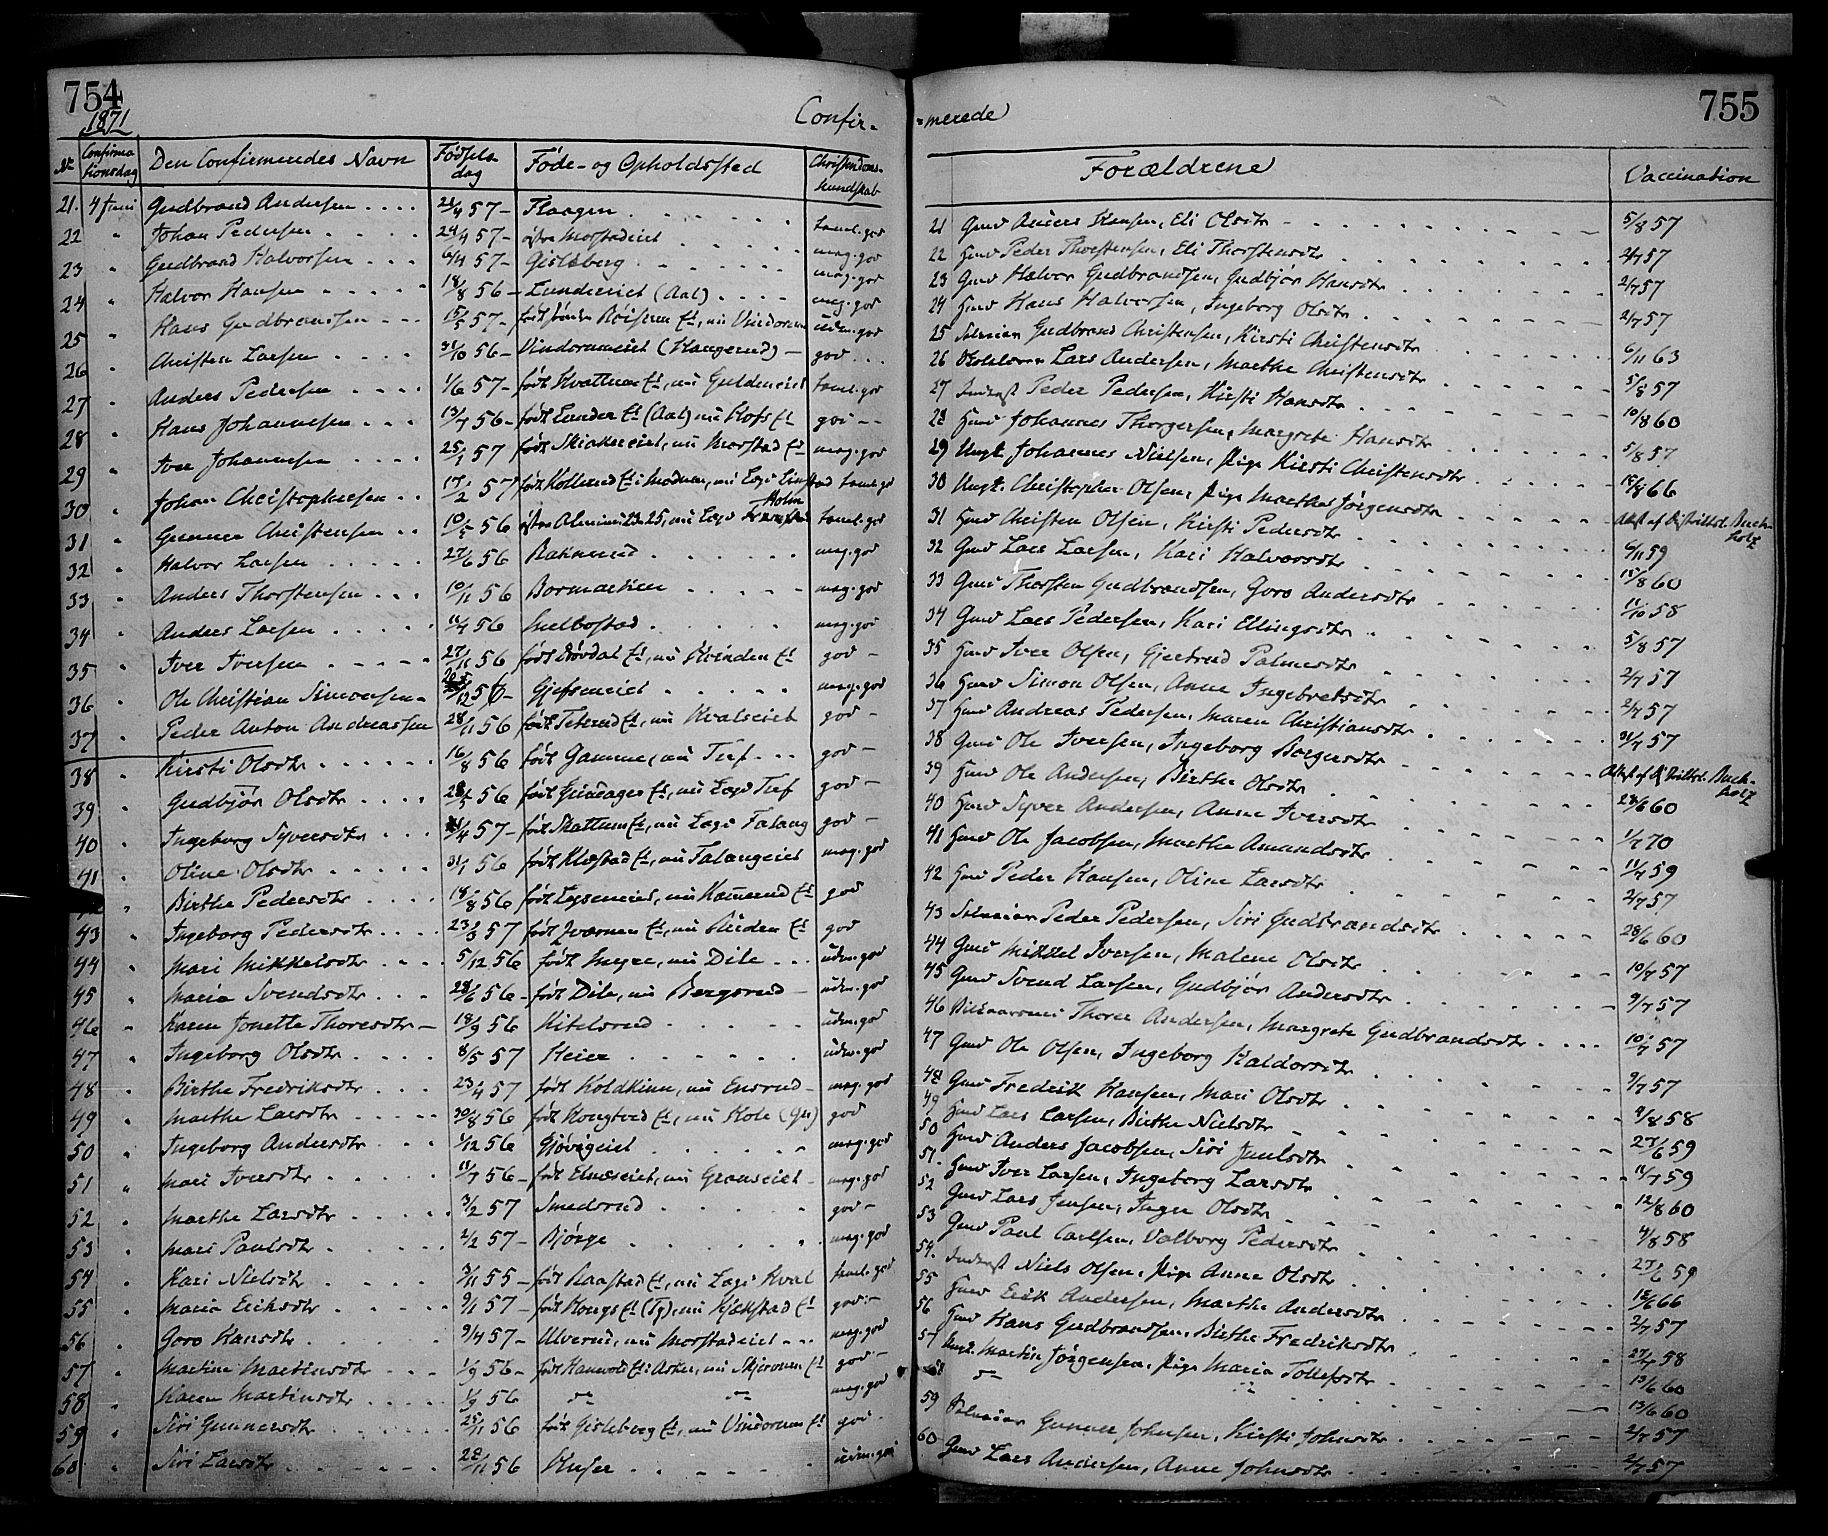 754
1871
Confir-
Nr Confirmationsdag Den Confirmeredes Navn Fødselsdag Føde- og Opholdssted Christendomskundskab
21. 4 Juni Gudbrand Andersen 57 - Haagen
22 " Johan Pedersen 24/4 57 - teml. god
23 " Gudbrand Halvorsen 6/4 57 - Gisleberg meg. god
24 " Halvor Hansen 18/8 56 - Lundereiet (Aal) meg. god
25 " Hans Gudbrandsen 15/5 57 - udm. god
26 " Christen Larsen 31/10 56 - Vindorumeiet (Haugerud) - god
27 " Anders Pedersen 1/6 57 - født Hvattum Et, nu Guldeneiet teml. god
28 " Hans Johannesen 13/7 56 - født Lunder Et (Aal) nu Hofs Et god
29 " Iver Johannesen 25/1 57 født Skiakereiet, nu Morstad Et meg. god
30 " Johan Christophersen 17/2 57 født Kollerud Et i Modum, nu Logi teml. god
31 " Gunner Christensen 10/5 56 teml. god
32 " Halvor Larsen 27/6 56 meg. god
33 " Anders Thorstensen 10/11 56 Bormarken meg. god
34 " Anders Larsen 11/4 56 Melbostad meg. god
35 " Iver Iversen 27/11 56 født Døvdal Et, nu Kvinden Et god -
36 " Ole Christian Simensen 56 - Gjefseneiet meg. god
37 " Peder Anton Andreassen 28/11 56 født Teterud Et, nu Hvalseiet god -
38 " Kirsti Olsdtr 16/8 56 født Gamme, nu Tuf god -
39 " Gudbjør Olsdtr 28/5 56 nu Logi Tuf god -
40 " Ingeborg Syversdtr 57 - født Skattum Et, nu Logi Falang god -
41 " Oline Olsdtr 31/1 56 født Klæstad Et, nu Falangeiet meg. god
" Birthe Pedersdtr 18/8 56 god
43 " Ingeborg Pedersdtr 23/3 57 god
44 " Mari Mikkelsdtr 5/12 56 født Myre, nu Dile udm. god
45 " Maria Svendsdtr 28/6 56 - født Dile, nu Bergsrud - udm. god
46 " Karen Jonette Thoresdtr - 18/9 56 Kitelsrud udm. god
47 " Ingeborg Olsdtr 8/5 57 Heier udm. god
48 " Birthe Fredriksdtr 23/4 57 født Koldkinn, nu Ensrud - meg. god
49 " Marthe Larsdtr 30/8 56 nu Hole god
50 " Ingeborg Andersdtr 1/12 56 Gjøvigeiet meg. god
51 " Mari Iversdtr 11/7 56 - nu Granseiet - meg. god
52 " Marthe Larsdtr 3/2 57 Smedsrud god -
53 " Mari Paulsdtr 2/2 57 - Bjørge meg. god
54 " Kari Nielsdtr 3/11 55 - født Raastad Et, nu Logi Hval teml. god
55 " Maria Eriksdtr 9/1 57 - nu Kjækstad Et god -
56 " Goro Hansdtr 9/4 57 - Ulverud, nu Morstadeiet meg. god
57 " Martine Martinsdtr 1/9 56 - født i Asker, nu Skjervum Et god -
58 " Karen Martinsdtr 1/9 56 meg. god
59 " Siri Gunnersdtr 25/11 56 født Gisleberg Et, nu Vindorum Et god
60 " Siri Larsdtr 22/11 56 udm. god
755
-merede
Forældrene Vaccination
21 Gmd Anders Hansen, Eli Olsdtr 5/8 57
22 Hmd Peder Thorstensen, Eli Thorstensdtr 2/7 57
23 Gmd Halvor Gudbrandsen, Gudbjør Hansdtr 2/7 57
24 Hmd Hans Halvorsen, Ingeborg Olsdtr 2/7 57
25 Gudbrand Christensen, Kirsti Christensdtr 6/11 63
26 Lars Andersen, Marthe Christensdtr 5/8 57
27 Inderst Peder Pedersen, Kirsti Hansdtr 10/8 60
28 Hmd Johannes Thorgersen, Margrete Hansdtr 5/8 57
29 Ungk. Johannes Nielsen, Pige Kirsti Christensdtr 66
30 Ungk. Christopher Olsen, Pige Marthe Jørgensdtr Attest af Distriktsl. Buchholtz
31 Hmd Christen Olsen, Kirsti Pedersdtr 6/11 59
32 Gmd Lars Larsen, Kari Halvorsdtr 15/8 60
33 Gmd Thorsten Gudbrandsen, Goro Andersdtr 11/10 58
34 Gmd Lars Pedersen, Kari Ellingsdtr 5/8 57
35 Hmd Iver Olsen, Gjertrud Palmesdtr 2/7 57
36 Hmd Simon Olsen, Anne Ingebretsdtr 2/7 57
37 Hmd Andreas Pedersen, Maren Christiansdtr 57
38 Gmd Ole Iversen, Ingeborg Borgersdtr Attest af Distriktsl. Buchholtz
39 Hmd Ole Andersen, Birthe Olsdtr 28/6 60
40 Hmd Syver Andersen, Anne Iversdtr 1/7 70
41 Hmd Ole Jacobsen, Marthe Amundsdtr 11/7 59
42 Hmd Peder Hansen, Oline Larsdtr 2/7 57
43 Peder Pedersen, Siri Gudbrandsdtr 28/6 60
44 Gmd Mikkel Iversen, Malene Olsdtr 10/7 57
45 Gmd Svend Larsen, Gudbjør Andersdtr 9/7 57
46 Thorer Andersen, Margrete Gudbrandsdtr 10/7 57
47 Gmd Ole Olsen, Ingeborg Haldorsdtr 9/7 57
48 Gmd Fredrik Hansen, Mari Olsdtr 9/8 58
49 Hmd Lars Larsen, Birthe Nielsdtr 27/6 59
50 Hmd Anders Jacobsen, Siri Juulsdtr 11/7 59
51. Hmd Iver Larsen, Ingeborg Larsdtr 12/8 60
52 Gmd Lars Jensen, Inger Olsdtr 4/8 58
53 Gmd Paul Carlsen, Valborg Pedersdtr 27/6 59
54. Inderst Niels Olsen, Pige Anne Olsdtr 15/6 66
55 Hmd Erik Andersen, Marthe Andersdtr 2/7 57
56 Hmd Hans Gudbrandsen, Birthe Fredriksdtr 58
57 Ungk. Martin Jørgensen, Pige Maria Tollefsdtr 13/6 60
13/6 60
59 Gunner Johnsen, Kirsti Johnsdtr 2/7 57
60 Gmd Lars Andersen, Anne Johnsdtr 2/7 57